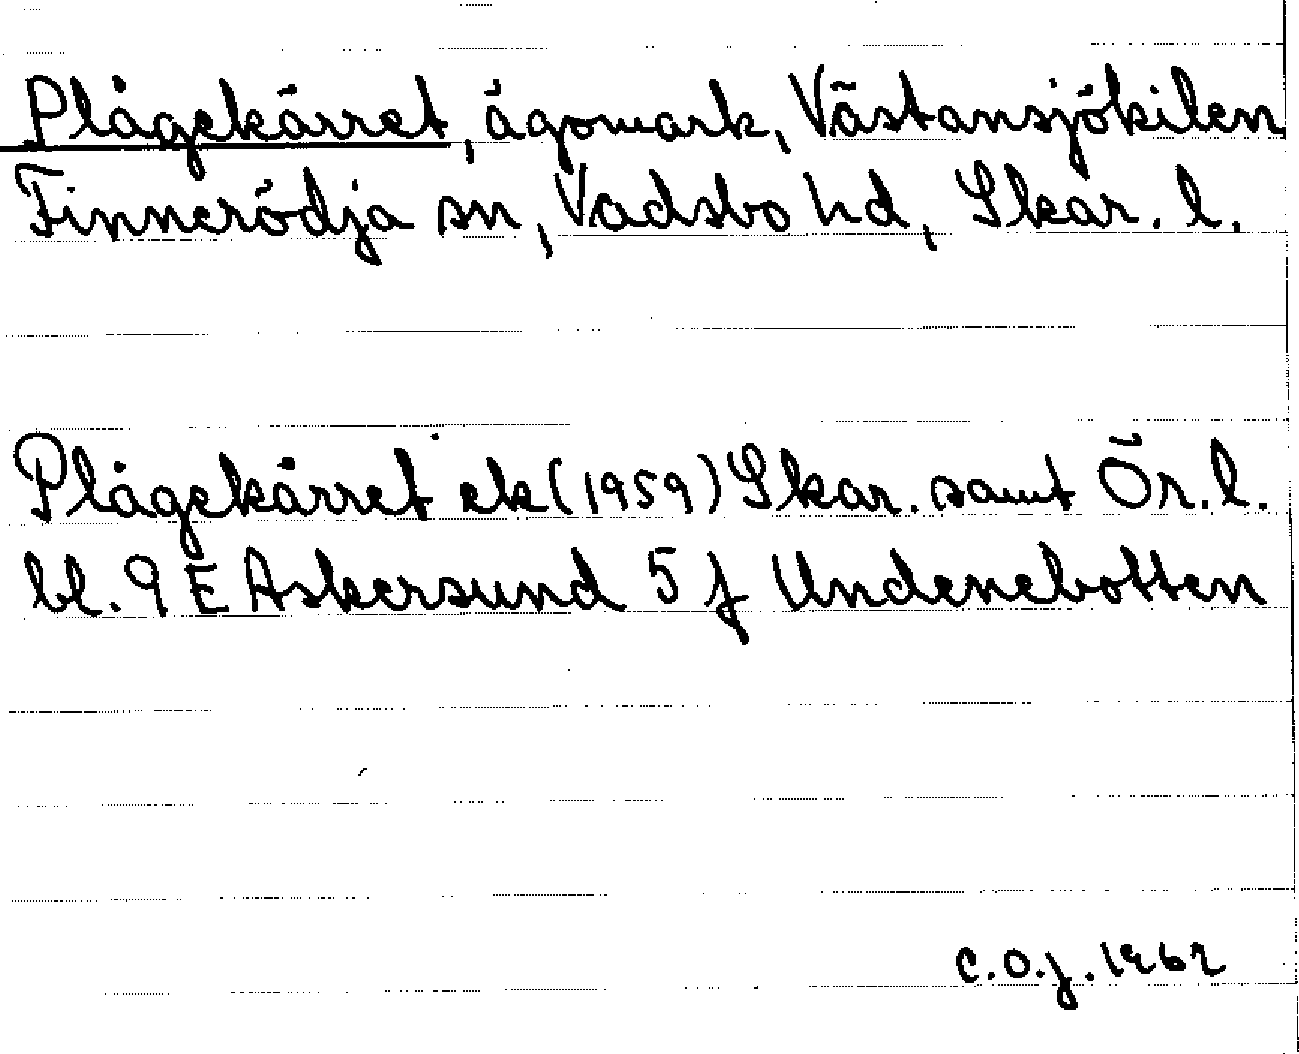 Plågekärret, ägomark, Västansjökilen
Finnerödja sn, Vadsbo hd, Skar. l.
Plågekärret ek (1959) Skar. samt Ör. l.
bl. 9 E Askersund 5 f Undenebotten
C.O.J. 1962